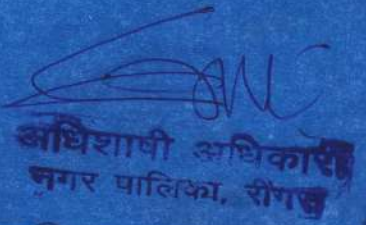 अधिशाषी अधिकारी
नगर पालिका, रींगस